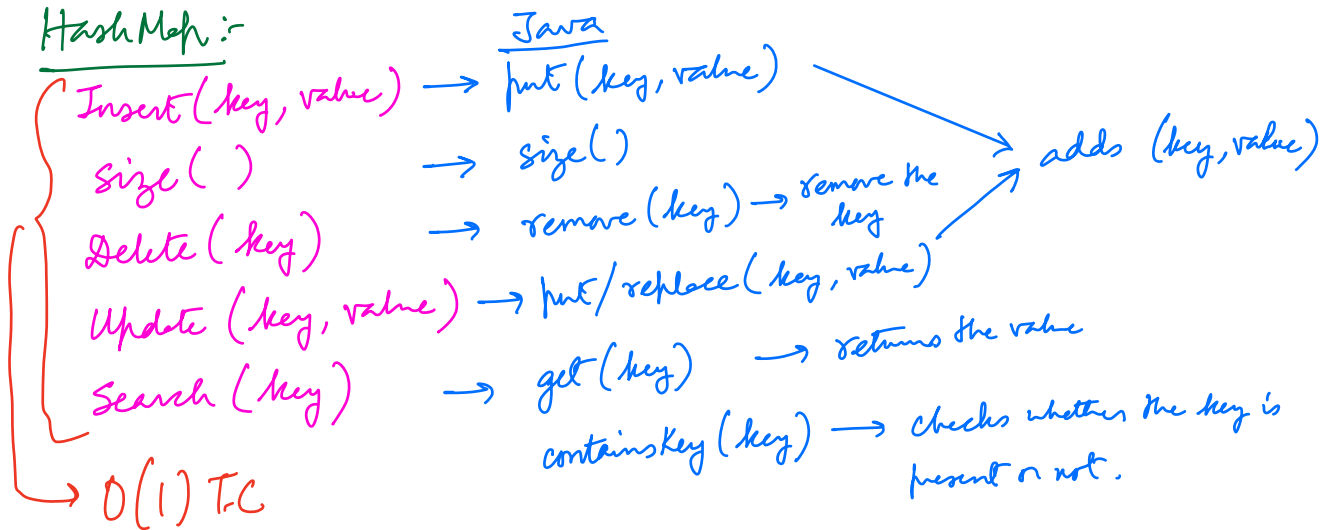 HashMap :-
Java
Insert(key, value) → put(key, value) → adds (key, value)
size( ) → size()
Delete(key) → remove(key) → remove the key
Update (key, value) → put/replace(key, value)
Search (key) → get(key) → returns the value
containsKey(key) → checks whether the key is
present or not.
→ O(1) T.C